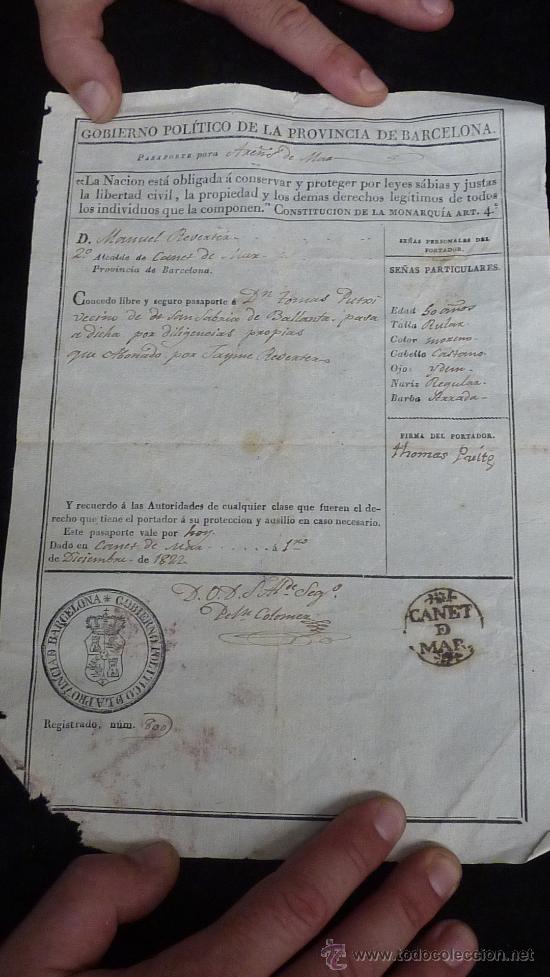 GOBIERNO POLÍTICO DE LA PROVINCIA DE BARCELONA.
PASAPORTE para Areñs de Mar
«La Nacion está obligada á conservar y proteger por leyes sábias y justas
la libertad civil, la propiedad y los demas derechos legítimos de todos
los individuos que la componen." CONSTITUCION DE LA MONARQUÍA ART. 4.º
D. Manuel Reverter
2º Alcalde de Canet de Mar
Provincia de Barcelona.
Concedo libre y seguro pasaporte á Dn. Tomas
vecino de de San de pasa
a dicha por diligencias propias
que Abonado por Jayme Reverter
SEÑAS PERSONALES DEL
PORTADOR.
SEÑAS PARTICULARES.
Edad 50 años
Talla Rular
Color moreno
Cabello Castano
Ojos Ydem
Nariz Regular
Barba Serrada
FIRMA DEL PORTADOR.
Thomas
Y recuerdo á las Autoridades de cualquier clase que fueren el de-
recho que tiene el portador á su proteccion y ausilio en caso necesario.
Este pasaporte vale por hoy
Dado en Canet de Mar á 1ro
de Diciembre de 1822
D. O. D. S. Alde. Segº.
Colomer
GOBIERNO POLITICO D LA PROVINCIA D BARCELONA
CANET
D
MAR
Registrado, núm. 800
todocoleccion
www.todocoleccion.net